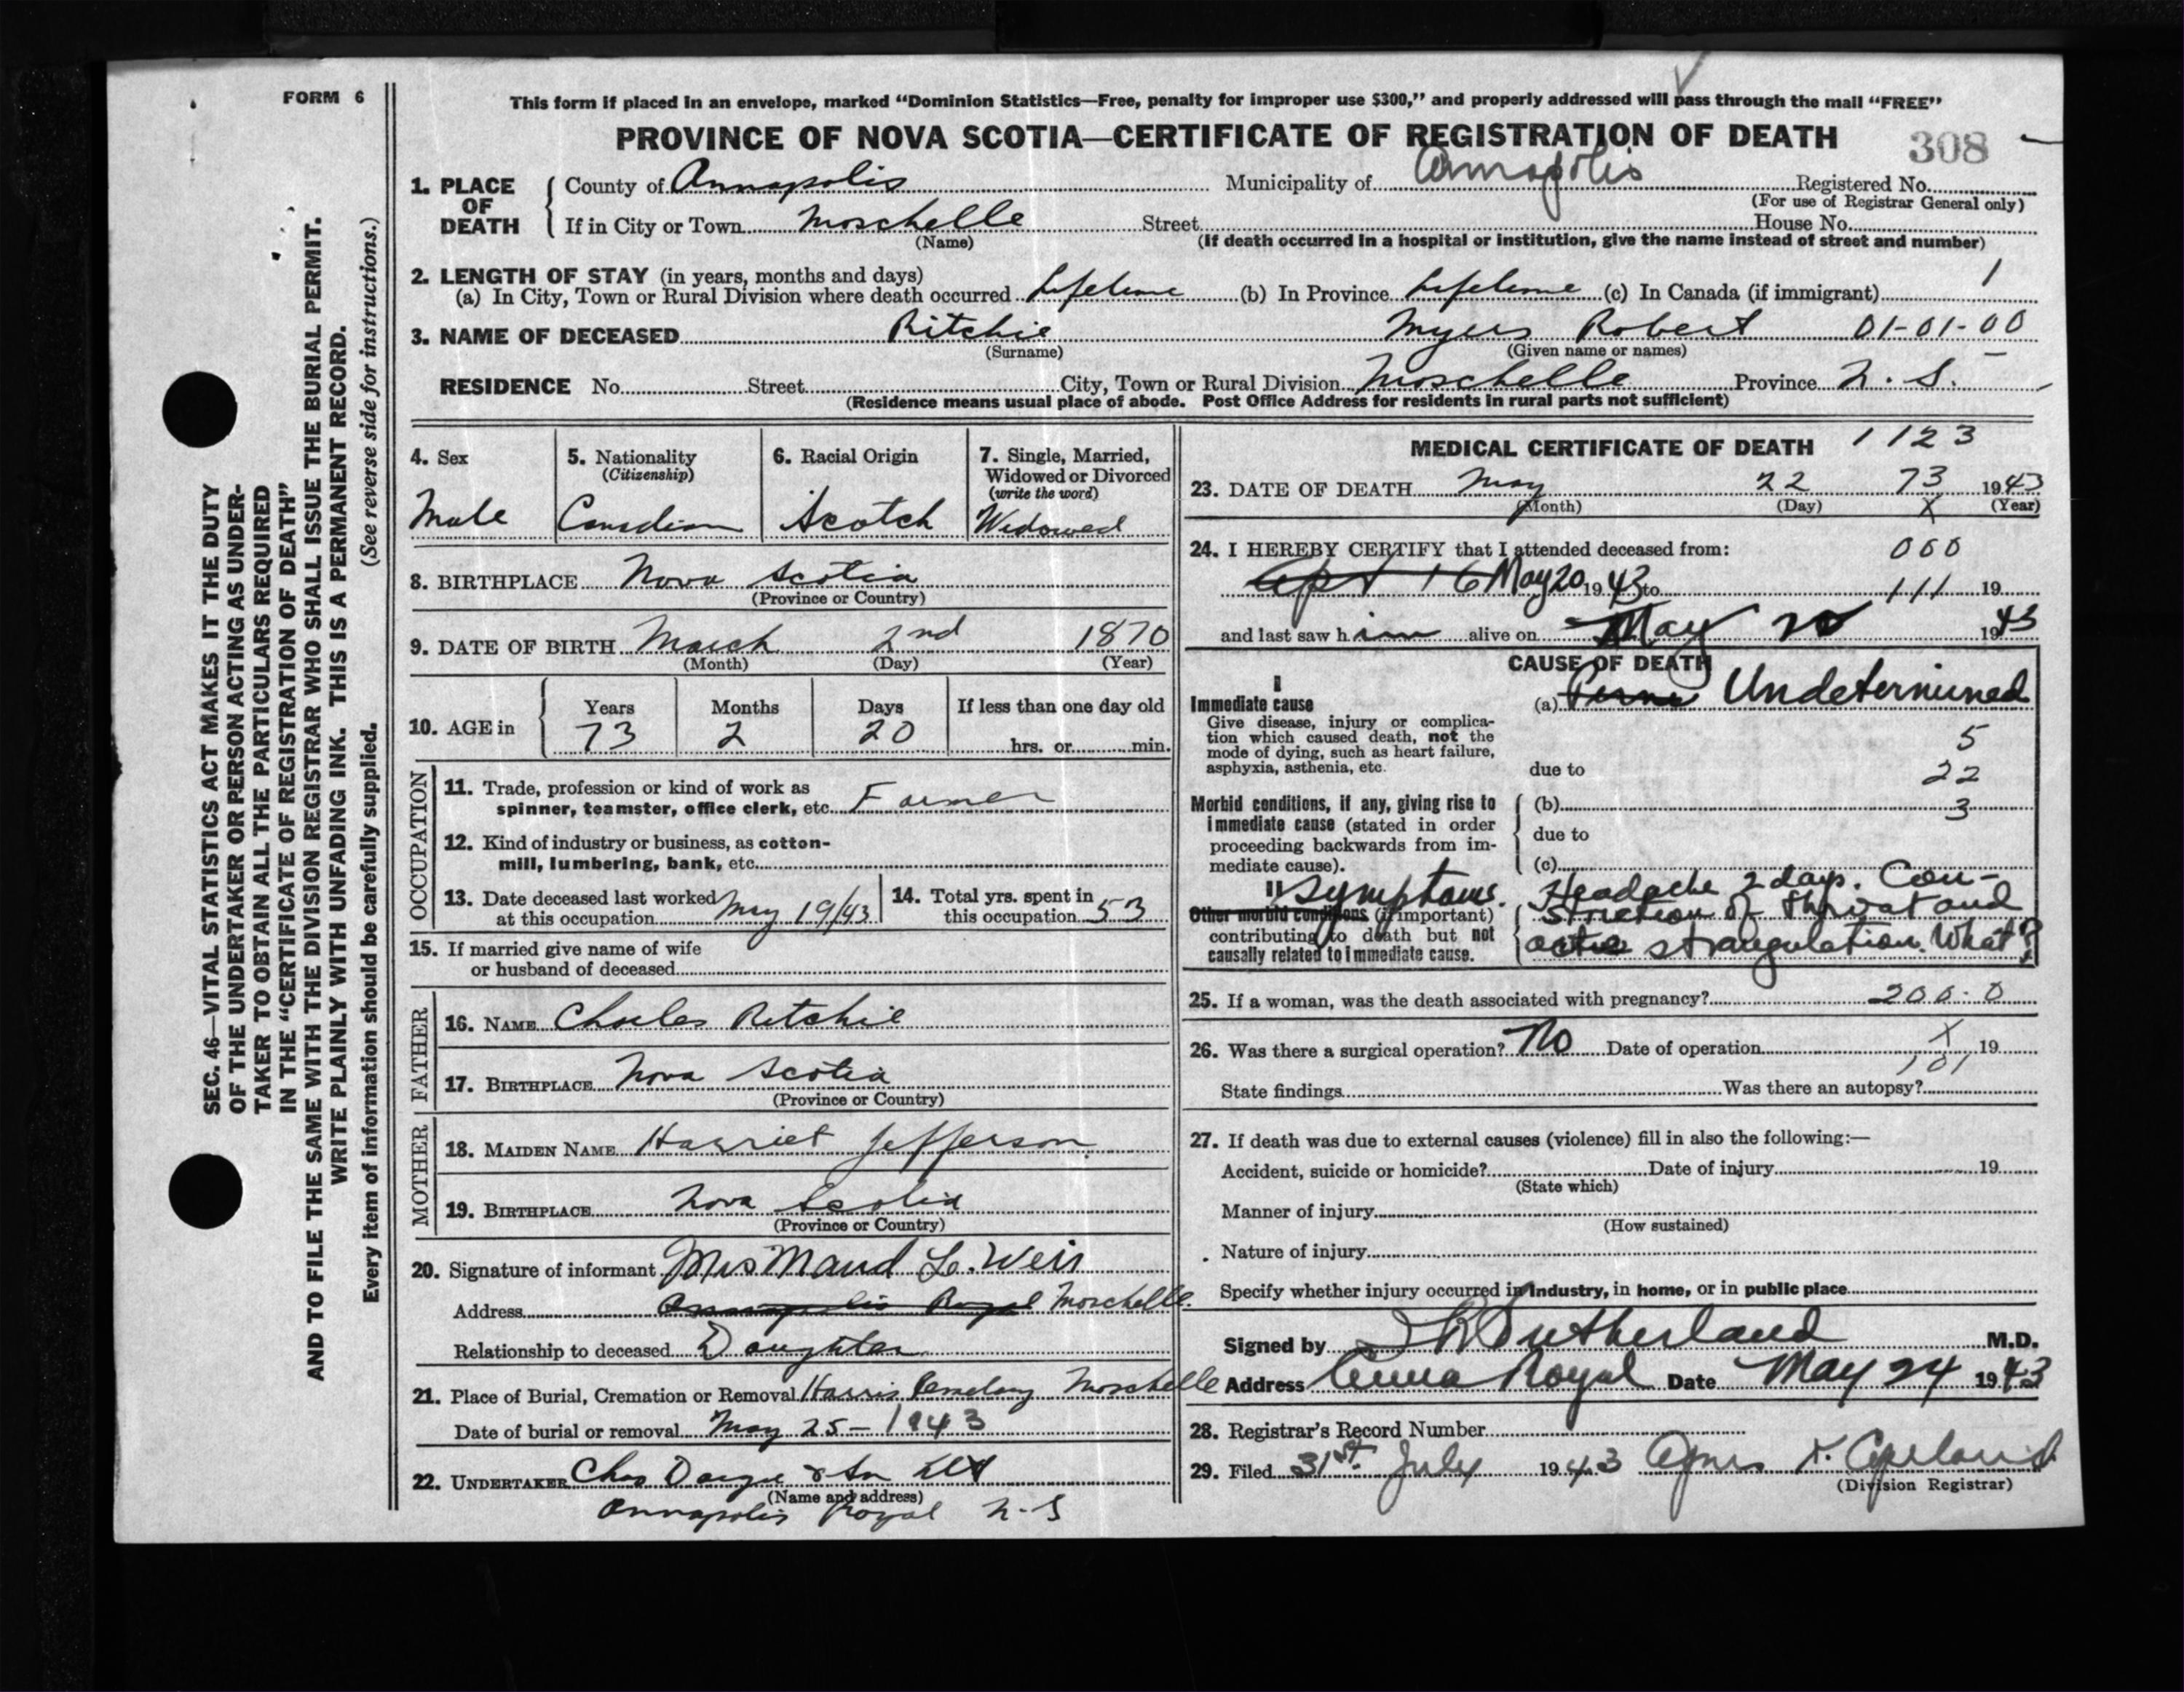 FORM 6
This form if placed in an envelope, marked "Dominion Statistics—Free, penalty for improper use $300," and properly addressed will pass through the mail "FREE"
PROVINCE OF NOVA SCOTIA—CERTIFICATE OF REGISTRATION OF DEATH
308
1. PLACE OF DEATH
County of Annapolis Municipality of Annapolis Registered No.
(For use of Registrar General only)
If in City or Town Moschelle Street House No.
(Name) (If death occurred in a hospital or institution, give the name instead of street and number)
2. LENGTH OF STAY (in years, months and days)
(a) In City, Town or Rural Division where death occurred Lifetime (b) In Province Lifetime (c) In Canada (if immigrant) 1
3. NAME OF DECEASED Ritchie Myers Robert 01-01-00
(Surname) (Given name or names)
RESIDENCE No. Street City, Town or Rural Division Moschelle Province N.S.
(Residence means usual place of abode. Post Office Address for residents in rural parts not sufficient)
4. Sex
Male
5. Nationality
(Citizenship)
Canadian
6. Racial Origin
Scotch
7. Single, Married, Widowed or Divorced
(write the word)
Widowed
8. BIRTHPLACE Nova Scotia
(Province or Country)
9. DATE OF BIRTH March 2nd 1870
(Month) (Day) (Year)
10. AGE in
Years Months Days If less than one day old
73 2 20 hrs. or min.
OCCUPATION
11. Trade, profession or kind of work as
spinner, teamster, office clerk, etc. Farmer
12. Kind of industry or business, as cotton-
mill, lumbering, bank, etc.
13. Date deceased last worked
at this occupation May 19/43
14. Total yrs. spent in
this occupation 53
15. If married give name of wife
or husband of deceased
FATHER
16. NAME Charles Ritchie
17. BIRTHPLACE Nova Scotia
(Province or Country)
MOTHER
18. MAIDEN NAME Harriet Jefferson
19. BIRTHPLACE Nova Scotia
(Province or Country)
20. Signature of informant Mrs Maud L. Weir
Address Annapolis Royal Moschelle
Relationship to deceased Daughter
21. Place of Burial, Cremation or Removal Harris Cemetary Moschelle
Date of burial or removal May 25 - 1943
22. UNDERTAKER Chas & Son Ltd
(Name and address)
Annapolis Royal N-S
MEDICAL CERTIFICATE OF DEATH 1123
23. DATE OF DEATH May 22 73 1943
(Month) (Day) X (Year)
24. I HEREBY CERTIFY that I attended deceased from: 000
Apr 16 May 20 1943 to 111 19
and last saw him alive on May 20 1943
CAUSE OF DEATH
I
Immediate cause (a) Undetermined
Give disease, injury or complica-
tion which caused death, not the
mode of dying, such as heart failure,
asphyxia, asthenia, etc.
5
due to 22
Morbid conditions, if any, giving rise to
immediate cause (stated in order
proceeding backwards from im-
mediate cause).
(b) 3
due to
(c)
II Symptoms. Headache 2 days. Con-
Other morbid conditions (if important)
contributing to death but not
causally related to immediate cause.
striction of throat and
strangulation. What?
25. If a woman, was the death associated with pregnancy? 200.0
26. Was there a surgical operation? No Date of operation X 19
101
State findings Was there an autopsy?
27. If death was due to external causes (violence) fill in also the following:—
Accident, suicide or homicide? Date of injury 19
(State which)
Manner of injury
(How sustained)
Nature of injury
Specify whether injury occurred in industry, in home, or in public place
Signed by Sutherland M.D.
Address Anna Royal Date May 24 1943
28. Registrar's Record Number
29. Filed 31st July 1943 Agnes Copeland
(Division Registrar)
SEC. 46—VITAL STATISTICS ACT MAKES IT THE DUTY
OF THE UNDERTAKER OR PERSON ACTING AS UNDER-
TAKER TO OBTAIN ALL THE PARTICULARS REQUIRED
IN THE "CERTIFICATE OF REGISTRATION OF DEATH"
AND TO FILE THE SAME WITH THE DIVISION REGISTRAR WHO SHALL ISSUE THE BURIAL PERMIT.
WRITE PLAINLY WITH UNFADING INK. THIS IS A PERMANENT RECORD.
Every item of information should be carefully supplied. (See reverse side for instructions.)